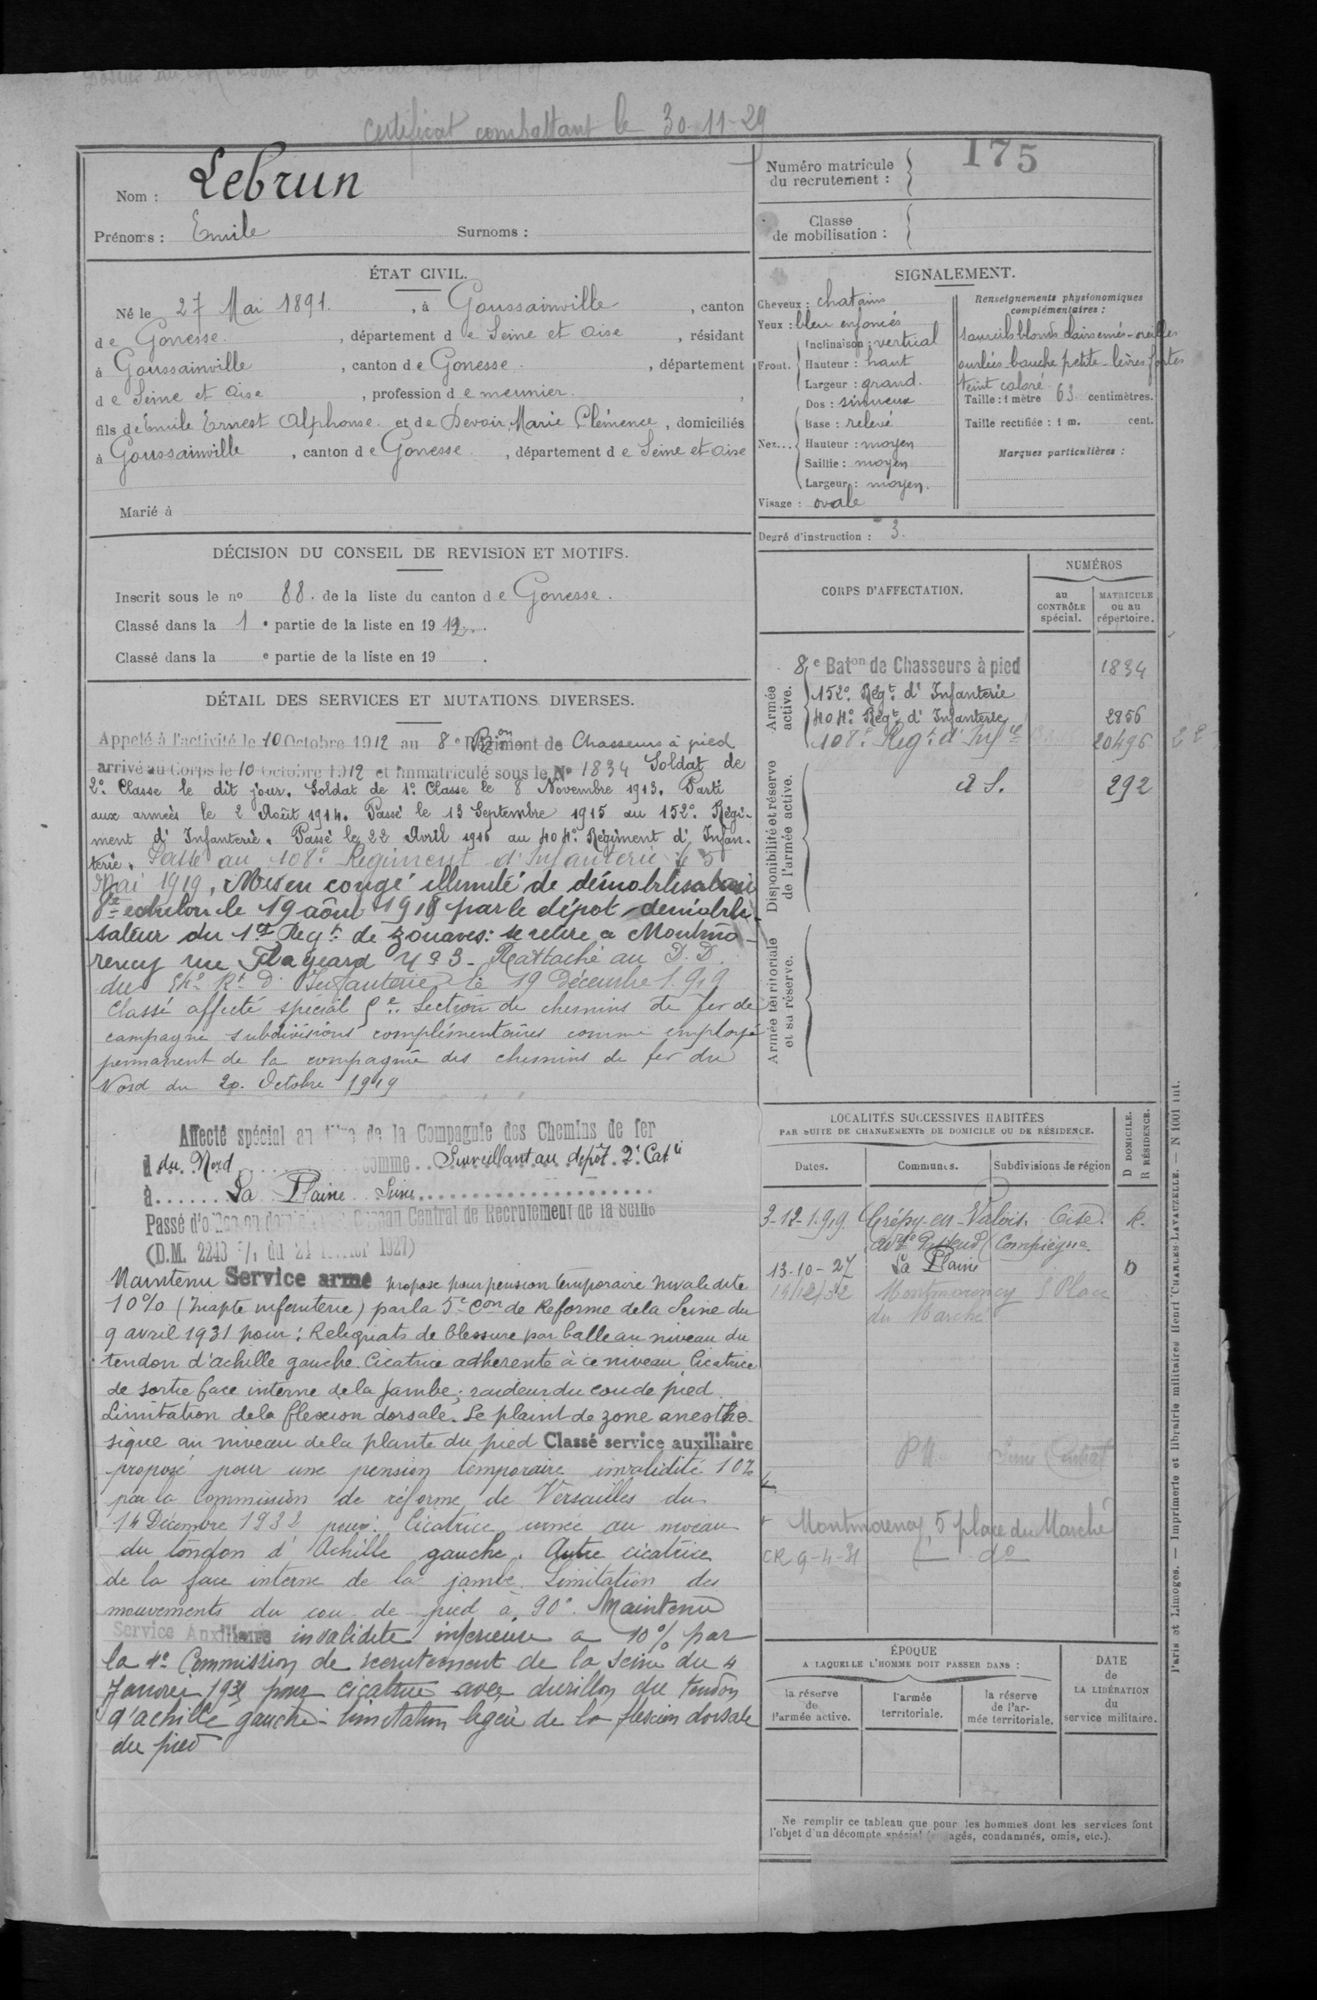 Certificat combattant le 30-11-29
Nom : Lebrun
Prénoms : Emile Surnoms :
Numéro matricule du recrutement : 175
Classe de mobilisation :
ÉTAT CIVIL.
Né le 27 Mai 1891. , à Goussainville , canton
de Gonesse. , département de Seine et Oise , résidant
à Goussainville , canton de Gonesse. , département
de Seine et Oise , profession de meunier. ,
fils de Emile Ernest Alphonse et de Devoir, Marie Clémence , domiciliés
à Goussainville , canton de Gonesse , département de Seine et Oise
Marié à
SIGNALEMENT.
Cheveux : chatains
Yeux : bleu enfoncés
Front. Inclinaison : vertical
Hauteur : haut
Largeur : grand.
Nez... Dos : sinueux
Base : relevé
Hauteur : moyen
Saillie : moyen
Largeur : moyen.
Visage : ovale
Renseignements physionomiques
complémentaires :
sourcils blonds clairsemés - oreilles
ourlées - bouche petite - lèvres fortes
teint coloré
Taille : 1 mètre 63 centimètres.
Taille rectifiée : 1 m. cent.
Marques particulières :
Degré d'instruction : 3.
DÉCISION DU CONSEIL DE REVISION ET MOTIFS.
Inscrit sous le no 88. de la liste du canton de Gonesse.
Classé dans la 1 e partie de la liste en 1912.
Classé dans la e partie de la liste en 19 .
DÉTAIL DES SERVICES ET MUTATIONS DIVERSES.
Appelé à l'activité le 10 Octobre 1912 au 8e Bon Régiment de Chasseurs à pied
arrivé au Corps le 10 Octobre 1912 et immatriculé sous le No 1834 Soldat de
2e Classe le dit jour. Soldat de 1e Classe le 8 Novembre 1913. Parti
aux armées le 2 Août 1914. Passé le 13 Septembre 1915 au 152e Régi-
ment d'Infanterie. Passé le 22 Avril 1916 au 404e Régiment d'Infan-
terie. Passé au 108e Régiment d'Infanterie le 5
Mai 1919, Mis en congé illimité de démobilisation
échelon le 19 août 1919 par le dépôt démobili-
sateur du 1er Regt de Zouaves: se retire à Montmo-
rency rue No 3. Rattaché au D.D.
du Rt D'Infanterie le 19 Décembre 1919
Classé affecté spécial 5e Section de chemins de fer de
campagne subdivisions complémentaires comme employé
permanent de la compagnie des chemins de fer du
Nord du 20. Octobre 1919
Affecté spécial au titre de la Compagnie des Chemins de fer
du Nord comme Surveillant au dépôt 2e Catie
à La Plaine Seine
Passé d'office au Bureau Central de Recrutement de la Seine
(D.M. 2243 /. du 21 février 1927)
Maintenu Service armé proposé pour pension temporaire invalidité
10% (Inapte infanterie) par la 5e Con de Reforme de la Seine du
9 avril 1931 pour : Reliquats de blessure par balle au niveau du
tendon d'achille gauche. Cicatrice adhérente à ce niveau Cicatrice
de sortie face interne de la jambe ; raideur du cou de pied
Limitation de la flexion dorsale. Se plaint de zone anesthé-
sique au niveau de la plante du pied Classé service auxiliaire
proposé pour une pension temporaire invalidité 10%
par la Commission de réforme de Versailles du
14 Décembre 1932 pour: Cicatrice au niveau
du tendon d'Achille gauche. Autre cicatrice
de la face interne de la jambe. Limitation des
mouvements du cou de pied à 90°. Maintenu
Service Auxiliaire invalidité inférieure à 10% par
la 1e Commission de recrutement de la Seine du 4
Janvier pour cicatrice avec durillon du tendon
d'achille gauche - limitation légère de la flexion dorsale
du pied
CORPS D'AFFECTATION.
NUMÉROS
au CONTRÔLE spécial.
MATRICULE ou au répertoire.
Armée active.
8e Baton de Chasseurs à pied 1834
152e Régt d'Infanterie
404e Régt d'Infanterie 2856
108e Régt d'Infie 20496
Disponibilité et réserve de l'armée active.
a S. 292
Armée territoriale et sa réserve.
LOCALITÉS SUCCESSIVES HABITÉES
PAR SUITE DE CHANGEMENTS DE DOMICILE OU DE RÉSIDENCE.
D DOMICILE.
R RÉSIDENCE.
Dates. Communes. Subdivisions de région
3-12-1919 Crépy-en-Valois. Oise. R.
Compiègne
13-10-27 La Plaine D
Montmorency 5 Place
du Marché
Montmorency 5 place du Marché
CR 9-4-31 do
ÉPOQUE
A LAQUELLE L'HOMME DOIT PASSER DANS :
la réserve de l'armée active.
l'armée territoriale.
la réserve de l'armée territoriale.
DATE
de
LA LIBÉRATION
du
service militaire.
Ne remplir ce tableau que pour les hommes dont les services font
l'objet d'un décompte spécial (engagés, condamnés, omis, etc.).
Paris et Limoges. — Imprimerie et librairie militaires Henri CHARLES-LAVAUZELLE. — N 1001 int.